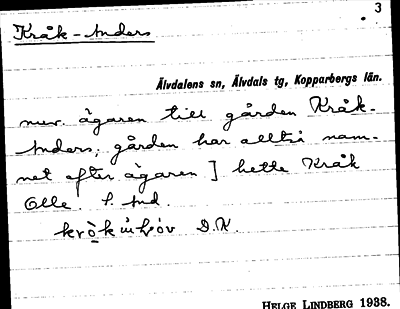 3
Kråk-Anders
Älvdalens sn, Älvdals tg, Kopparbergs län.
nuv. ägaren till gården Kråk-
Anders; gården har alltså nam-
net efter ägaren ] hette Kråk
Olle f. And.
D.K.
HELGE LINDBERG 1938.